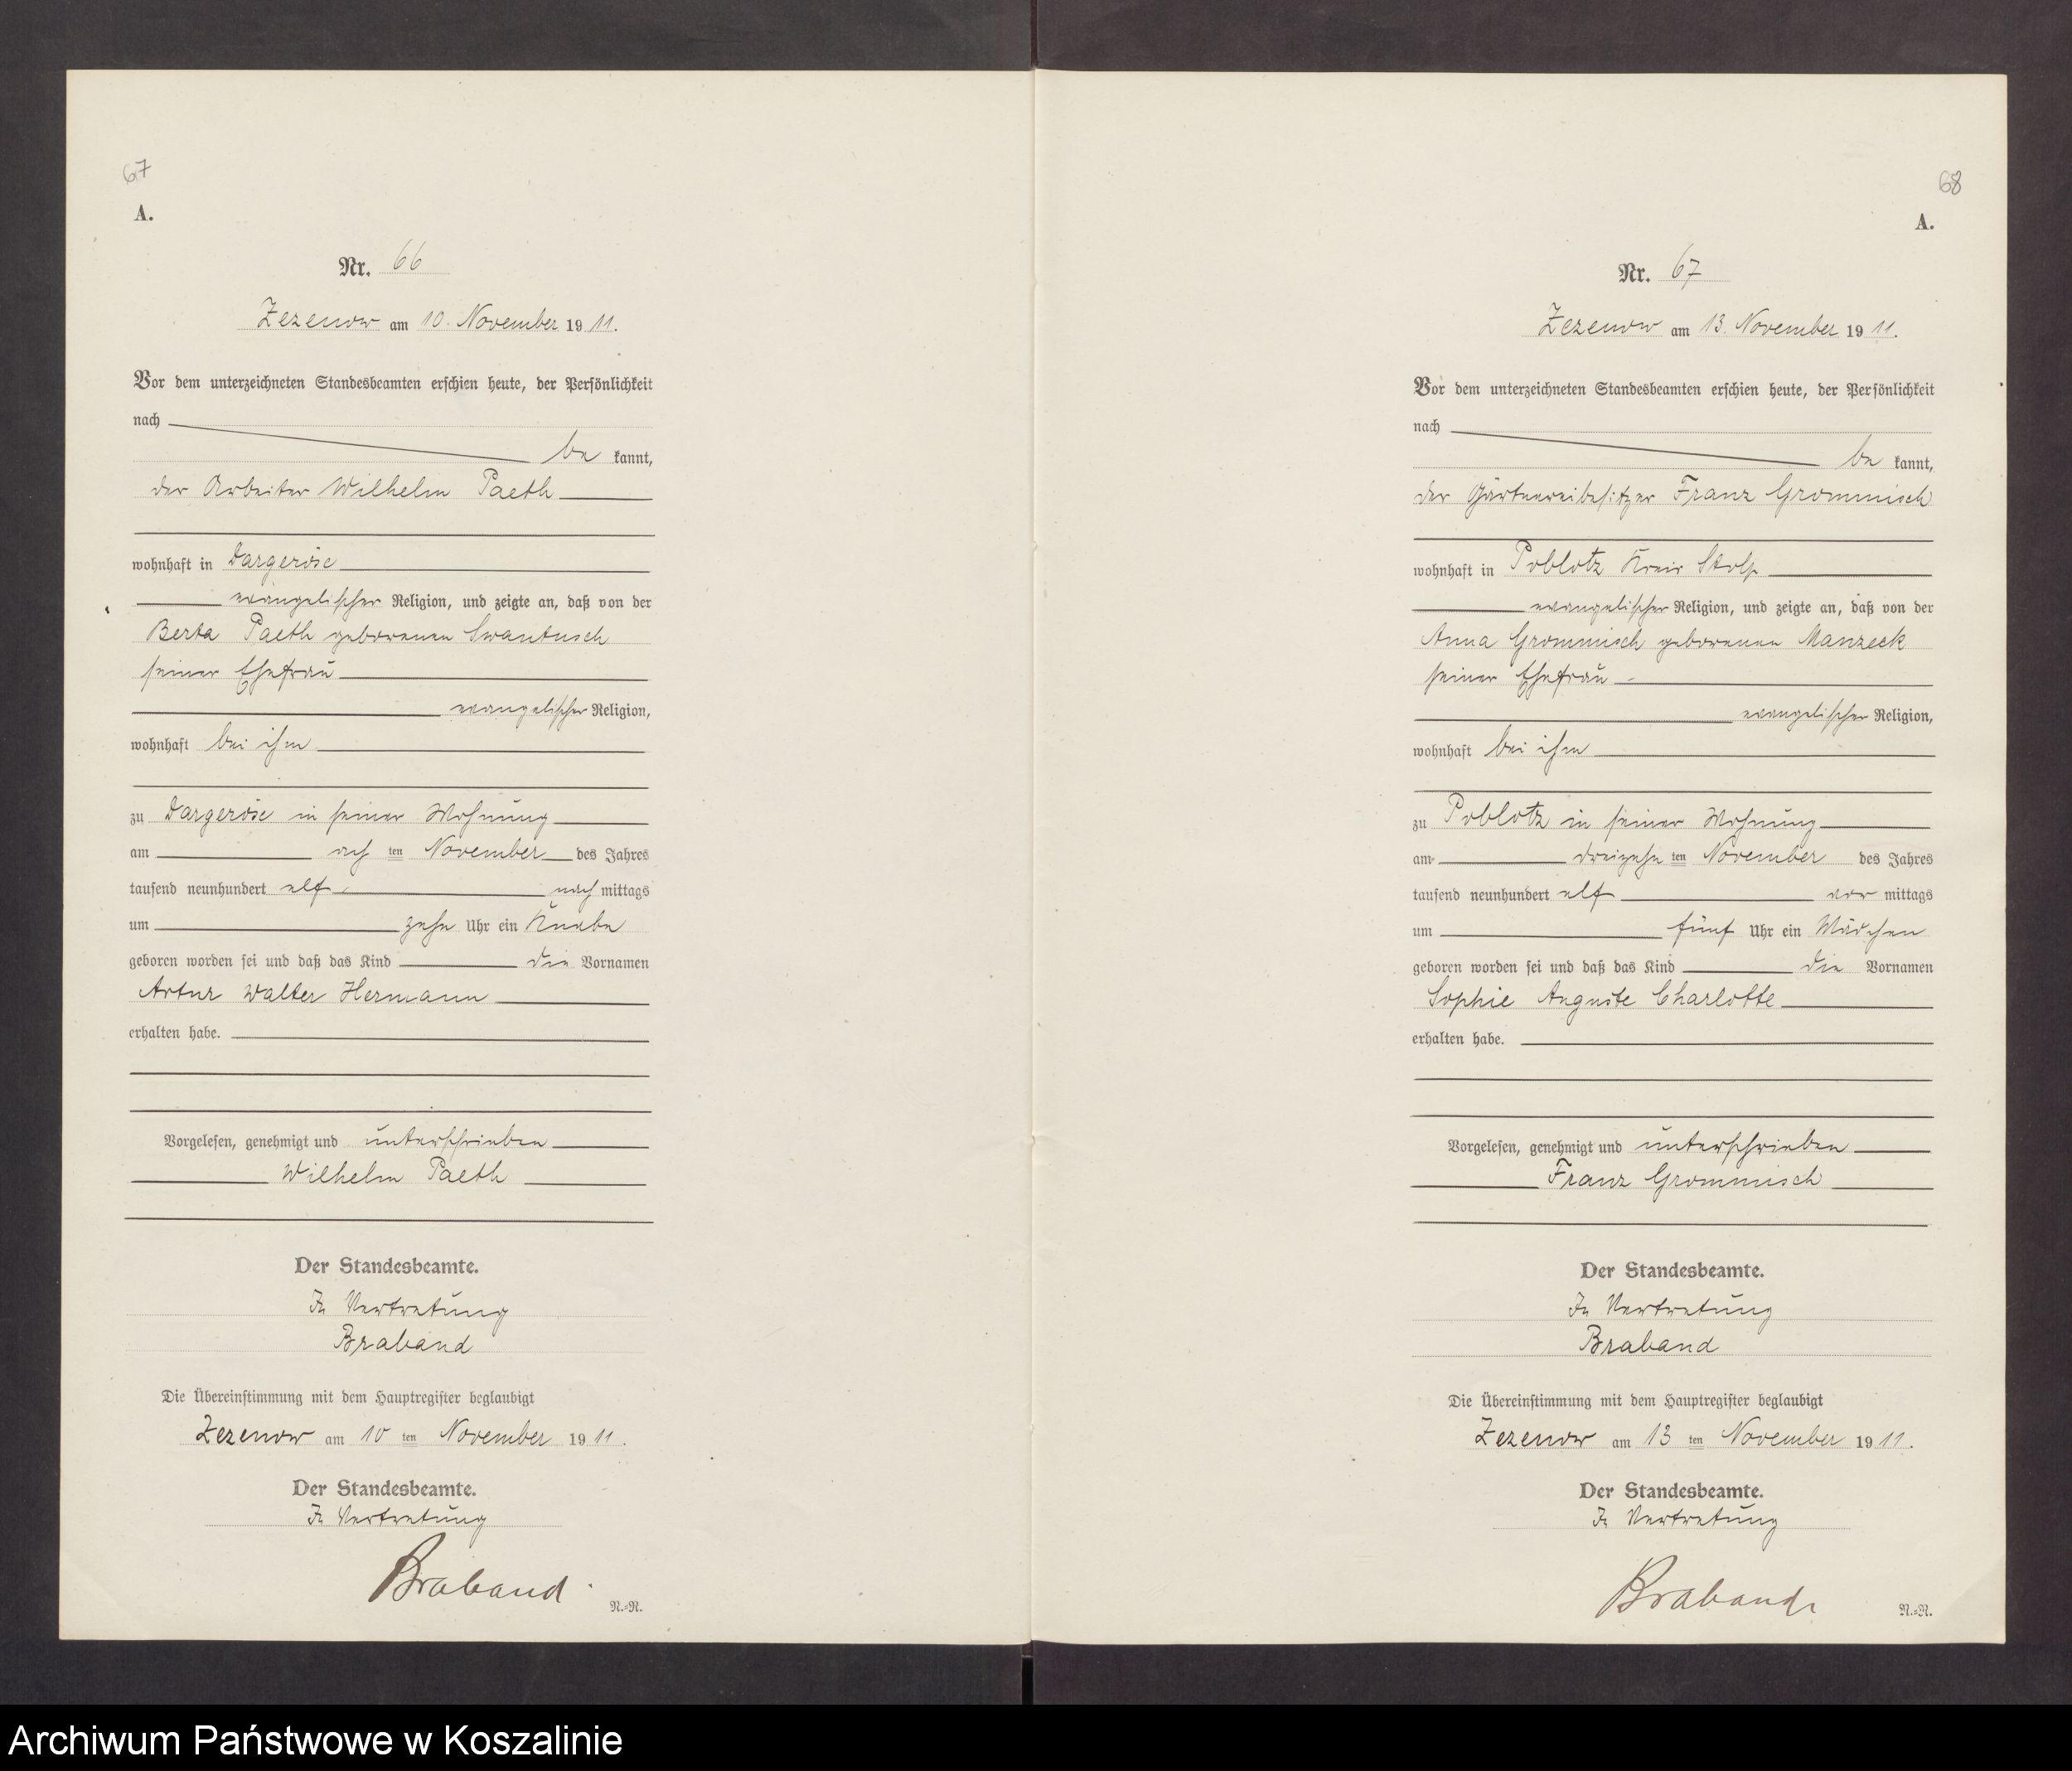 67
A.
Nr. 66
Zezenow am 10. November 1911.
Vor dem unterzeichneten Standesbeamten erschien heute, der Persönlichkeit
nach
be kannt,
der Arbeiter Wilhelm Paeth
wohnhaft in Dargeröse
evangelischer Religion, und zeigte an, daß von der
Berta Paeth geborenen Swantusch
seiner Ehefrau
evangelischer Religion,
wohnhaft bei ihm
zu Dargeröse in seiner Wohnung
am ach ten November des Jahres
tausend neunhundert elf nach mittags
um zehn Uhr ein Knabe
geboren worden sei und daß das Kind die Vornamen
Artur Walter Hermann
erhalten habe.
Vorgelesen, genehmigt und unterschrieben
Wilhelm Paeth
Der Standesbeamte.
In Vertretung
Braband
Die Übereinstimmung mit dem Hauptregister beglaubigt
Zezenow am 10 ten November 1911.
Der Standesbeamte.
In Vertretung
Braband
N.=R.
68
A.
Nr. 67
Zezenow am 13. November 1911.
Vor dem unterzeichneten Standesbeamten erschien heute, der Persönlichkeit
nach
be kannt,
der Gärtnereibesitzer Franz Grommisch
wohnhaft in Poblotz Kreis Stolp
evangelischer Religion, und zeigte an, daß von der
Anna Grommisch geborenen Manzeck
seiner Ehefrau
evangelischer Religion,
wohnhaft bei ihm
zu Poblotz in seiner Wohnung
am dreizehn ten November des Jahres
tausend neunhundert elf vor mittags
um fünf Uhr ein Mädchen
geboren worden sei und daß das Kind die Vornamen
Sophie Auguste Charlotte
erhalten habe.
Vorgelesen, genehmigt und unterschrieben
Franz Grommisch
Der Standesbeamte.
In Vertretung
Braband
Die Übereinstimmung mit dem Hauptregister beglaubigt
Zezenow am 13 ten November 1911.
Der Standesbeamte.
In Vertretung
Braband
N.=R.
Archiwum Państwowe w Koszalinie